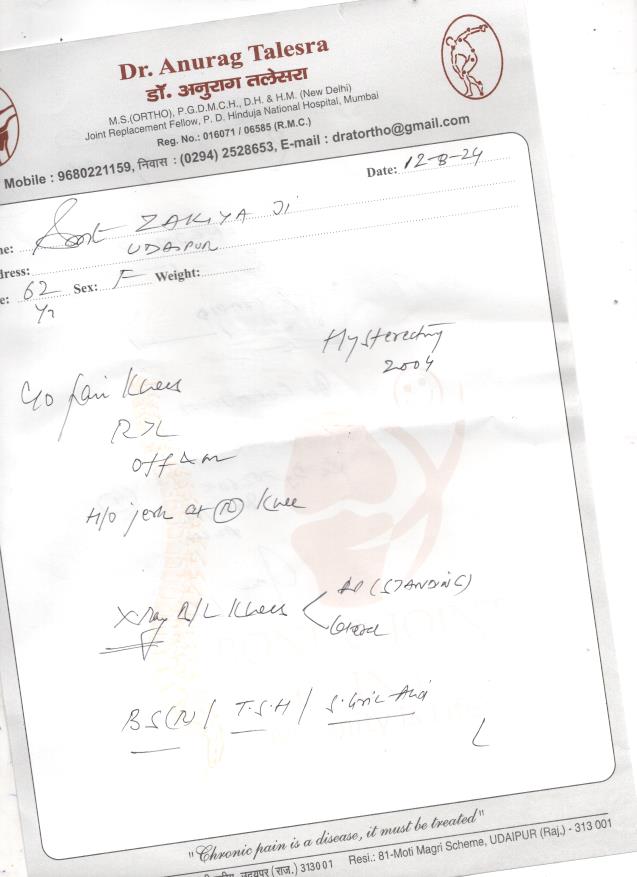 Dr. Anurag Talesra
डॉ. अनुराग तलेसरा
M.S.(ORTHO), P.G.D.M.C.H., D.H. & H.M. (New Delhi)
Joint Replacement Fellow, P. D. Hinduja National Hospital, Mumbai
Reg. No.: 016071 / 06585 (R.M.C.)
Mobile : 9680221159, निवास : (0294) 2528653, E-mail : dratortho@gmail.com
Date: 12-8-24
me: Smt ZAKIYA Ji
dress: UDAIPUR
e: 62 Yr Sex: F Weight:
Hysterectomy
2004
C/o pain Knees
R>L
off & on
H/o jerk at (R) Knee
X-ray B/L Knees < AP (STANDING)
Lateral
BS(R) / T.S.H / S. Uric Acid
"Chronic pain is a disease, it must be treated"
उदयपुर (राज.) 313001 Resi.: 81-Moti Magri Scheme, UDAIPUR (Raj.) - 313 001